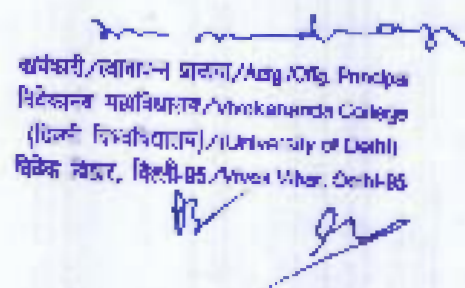 कार्यकारी/स्थानापन्न प्राचार्य/Actg./Offg. Principal
विवेकानन्द महाविद्यालय/Vivekananda College
(दिल्ली विश्वविद्यालय)/(University of Delhi)
विवेक विहार, दिल्ली-95/Vivek Vihar, Delhi-95